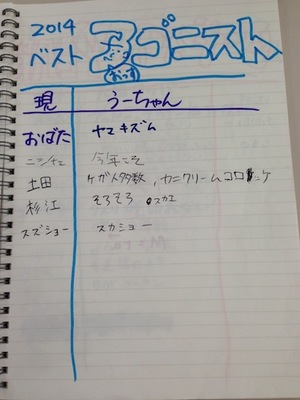 2014
ベスト ゴニスト
現 うーちゃん
おばた ヤマキズム
今年こそ
土田 ケガ人多数、カニクリームコロッケ
杉江 そろそろ
スズショー スカショー